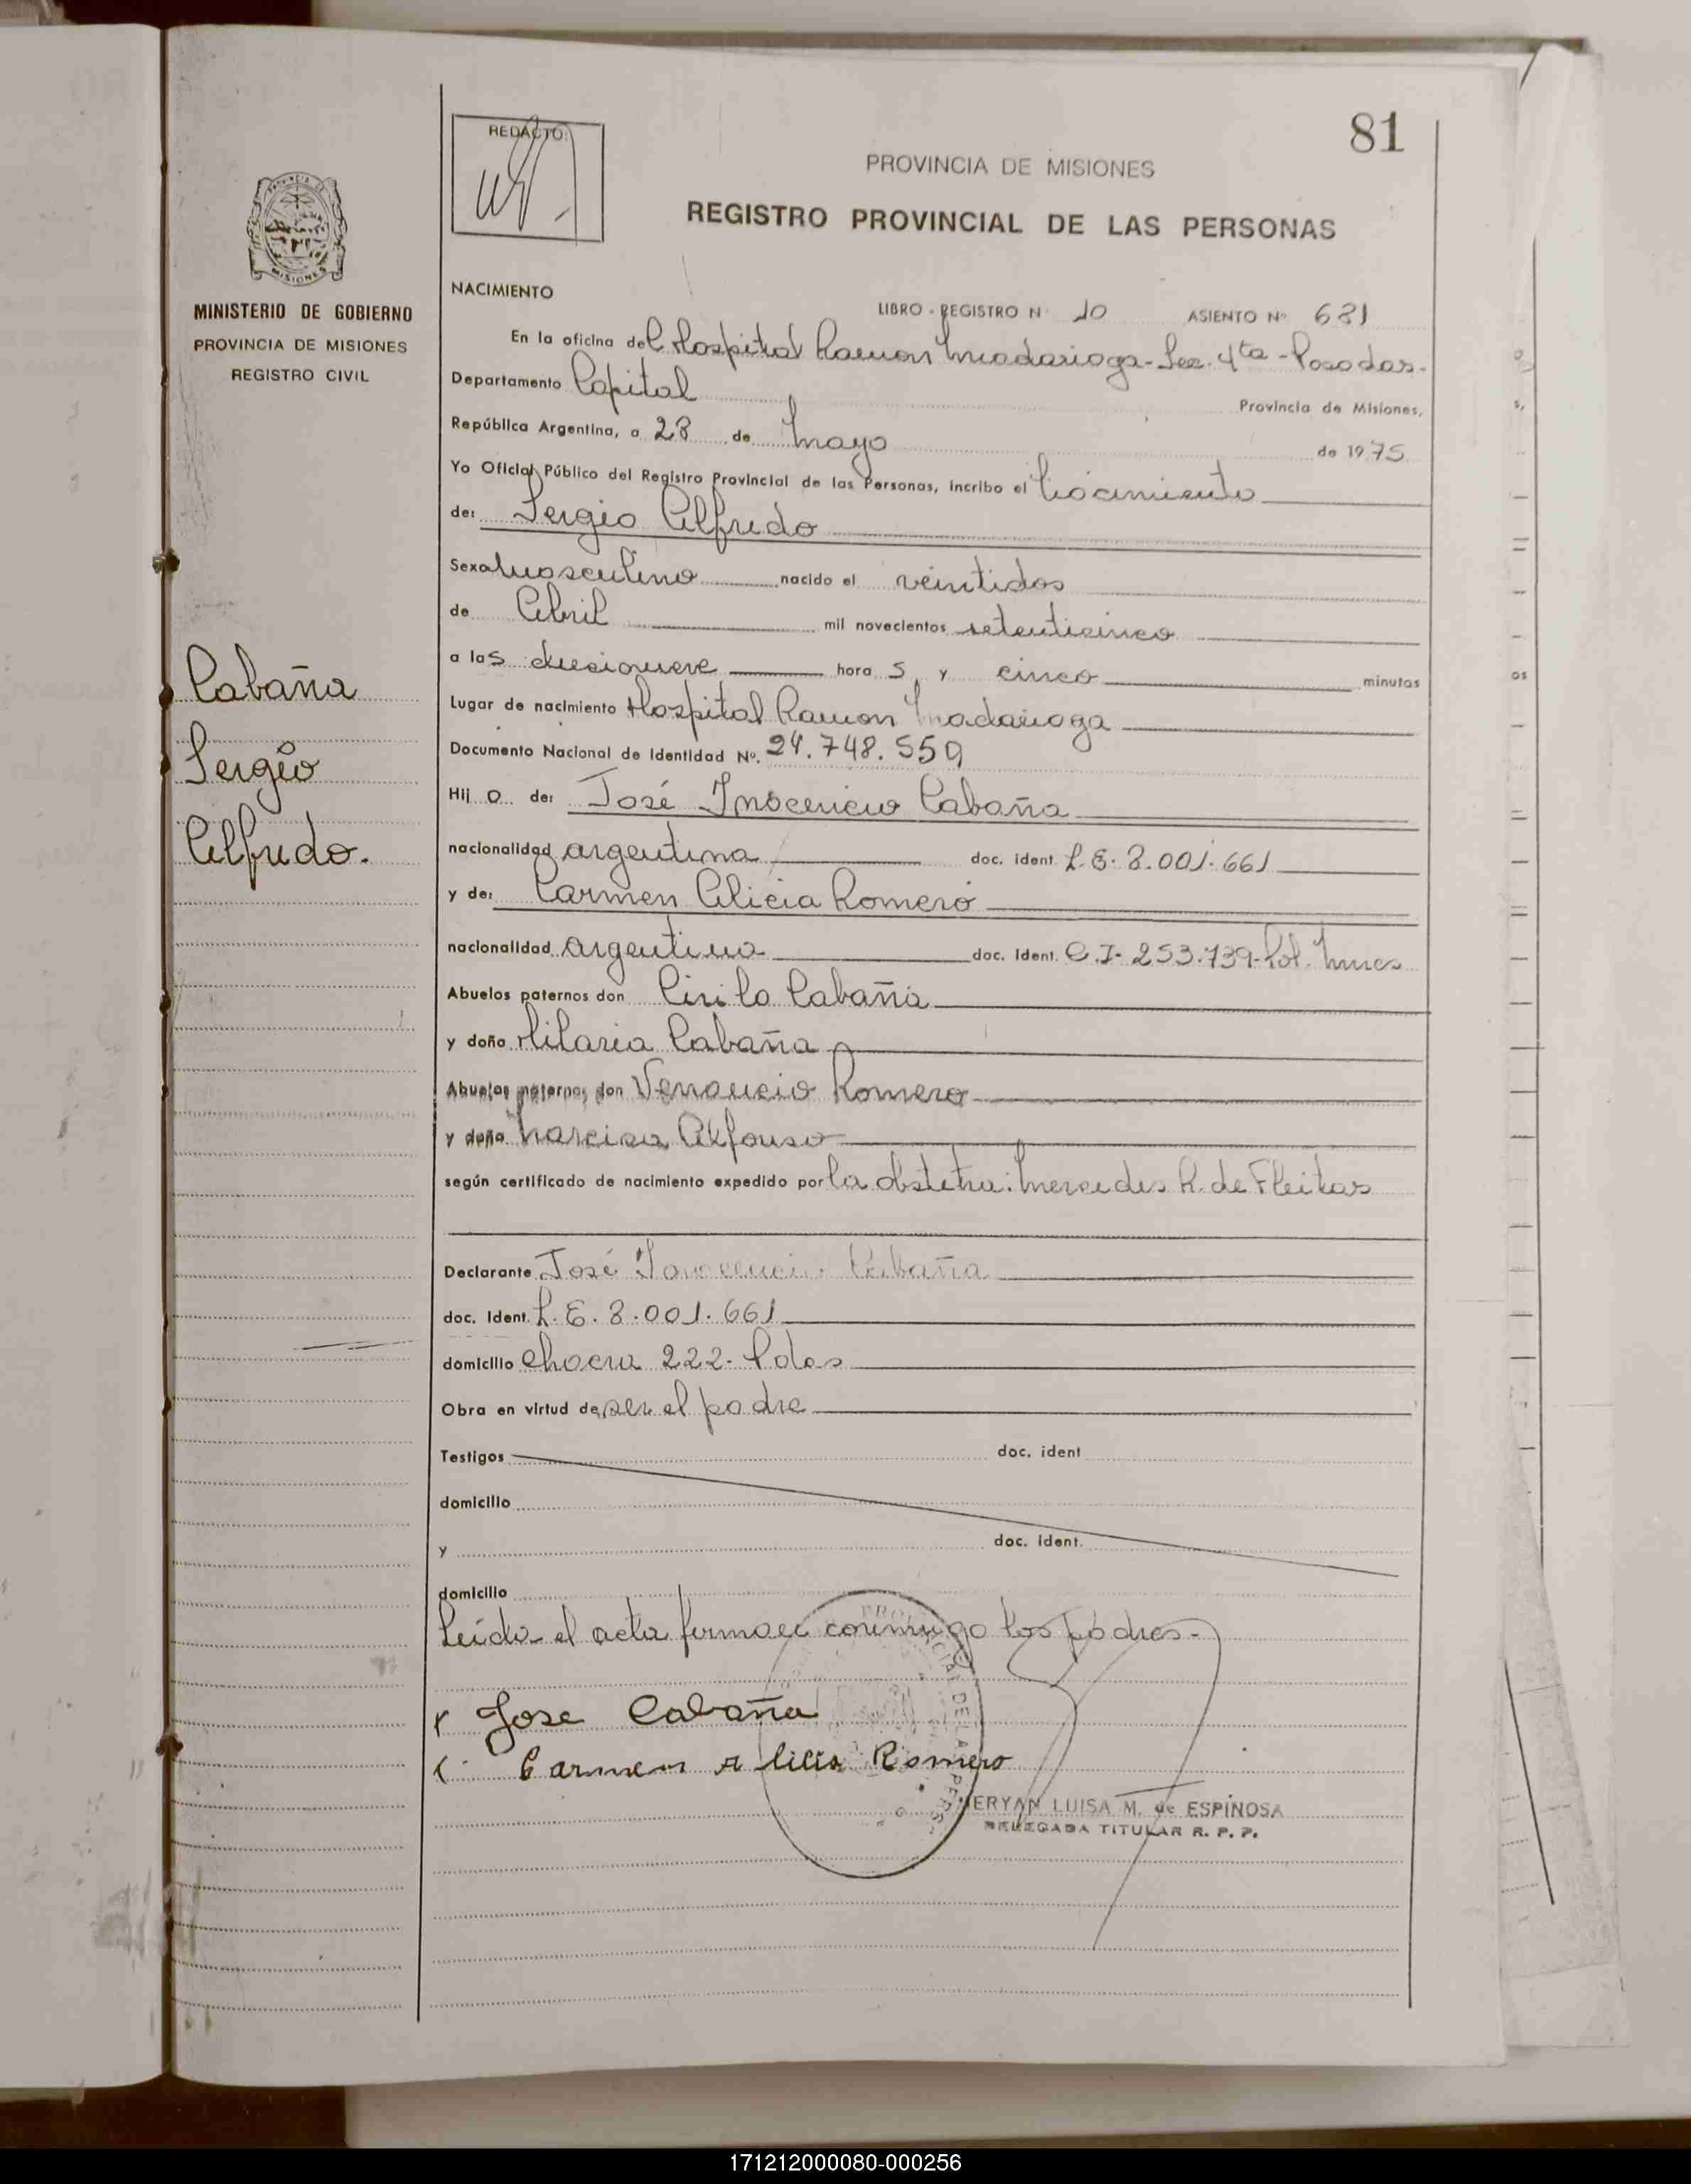 81
REDACTO:
PROVINCIA DE MISIONES
REGISTRO PROVINCIAL DE LAS PERSONAS
MINISTERIO DE GOBIERNO
PROVINCIA DE MISIONES
REGISTRO CIVIL
Cabaña
Sergio
Alfredo.
NACIMIENTO
LIBRO - REGISTRO N 10 ASIENTO Nº 681
En la oficina del Hospital Ramon Madariaga - Sec. 4ta - Posadas.
Departamento Capital Provincia de Misiones,
República Argentina, a 28 de Mayo de 1975
Yo Oficial Público del Registro Provincial de las Personas, incribo el Nacimiento
de: Sergio Alfredo
Sexo Masculino nacido el veintidos
de Abril mil novecientos setenticinco
a las diecinueve hora s y cinco minutos
Lugar de nacimiento Hospital Ramon Madariaga
Documento Nacional de Identidad Nº. 24.748.559
Hij o de: José Inocencio Cabaña
nacionalidad argentina doc. ident. L.E. 8.001.661
y de: Carmen Alicia Romero
nacionalidad argentina doc. ident. C.I. 253.739- Pol. Mnes
Abuelos paternos don Cirilo Cabaña
y doña Hilaria Cabaña
Abuelos maternos don Venancio Romero
y doña Narcisa Alfonso
según certificado de nacimiento expedido por la obstetra: Mercedes R. de Fleitas
Declarante José Inocencio Cabaña
doc. ident. L.E. 8.001.661
domicilio Chacra 222- Pdas
Obra en virtud de ser el padre
Testigos doc. ident
domicilio
y doc. ident.
domicilio
Leida el acta firman conmigo los padres-
x Jose Cabaña
x Carmen Alicia Romero
ERYAN LUISA M. de ESPINOSA
DELEGADA TITULAR R. P. P.
171212000080-000256